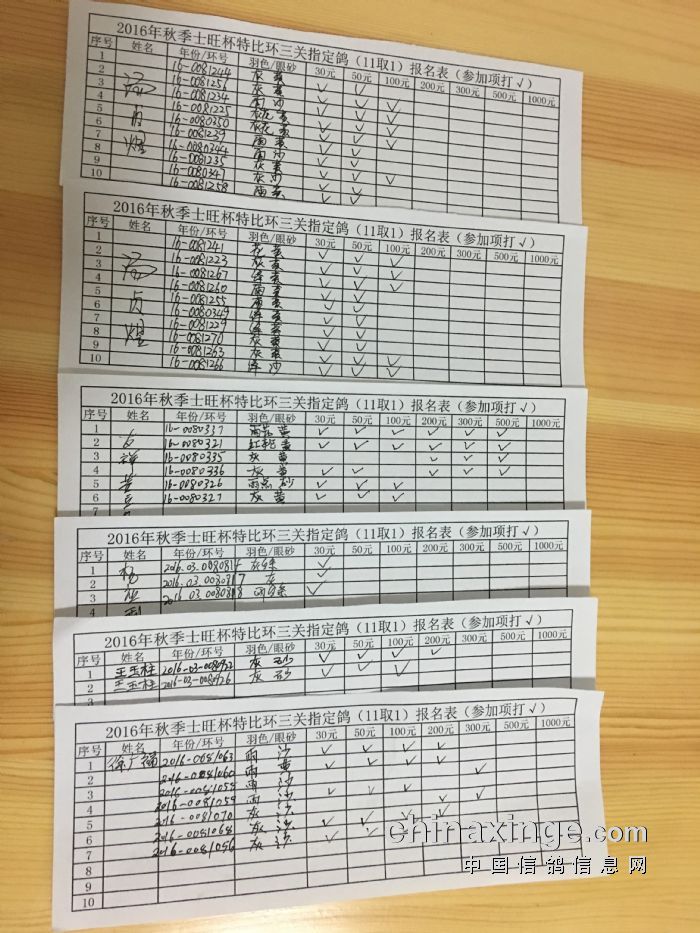 2016年秋季士旺杯特比环三关指定鸽（11取1）报名表（参加项打√）
序号 姓名 年份/环号 羽色/眼砂 30元 50元 100元 200元 300元 500元 1000元
1 16-0081244 灰 黄 √ √
2 16-0081256 灰 黄 √ √
3 16-0081234 雨 沙 √ √ √
4 16-0081225 灰花 黄 √ √ √
5 16-0080350 灰花 黄 √ √ √
6 16-0081239 雨 黄 √ √ √
7 16-0080344 雨 沙 √ √
8 16-0081235 灰 黄 √ √
9 16-0080347 灰 沙 √ √ √
10 16-0081258 雨 黄 √ √
2016年秋季士旺杯特比环三关指定鸽（11取1）报名表（参加项打√）
序号 姓名 年份/环号 羽色/眼砂 30元 50元 100元 200元 300元 500元 1000元
1 16-0081241 花 黄 √ √ √
2 16-0081223 灰 黄 √ √ √
3 16-0081267 绛 黄 √ √ √
4 16-0081260 雨 黄 √ √ √
5 16-0081255 雨 黄 √ √
6 16-0080349 绛 黄 √ √
7 16-0081229 绛 黄 √ √
8 16-0081270 灰 黄 √ √
9 16-0081263 灰 黄 √ √ √
10 16-0081266 绛 沙 √ √ √
2016年秋季士旺杯特比环三关指定鸽（11取1）报名表（参加项打√）
序号 姓名 年份/环号 羽色/眼砂 30元 50元 100元 200元 300元 500元 1000元
1 16-0080337 雨点 黄 √ √ √ √ √ √
2 16-0080321 红轮 黄 √ √ √ √ √ √
3 祥 16-0080335 灰 黄 √ √ √
4 16-0080336 灰 黄 √ √ √ √ √
5 黄 16-0080326 雨点 砂 √ √ √
6 16-0080327 灰 黄 √ √ √
7
2016年秋季士旺杯特比环三关指定鸽（11取1）报名表（参加项打√）
序号 姓名 年份/环号 羽色/眼砂 30元 50元 100元 200元 300元 500元 1000元
1 杨 2016-03-0080814 灰 √
2 2016-03-0080817 灰 √
3 2016-03-0080818 √
4
2016年秋季士旺杯特比环三关指定鸽（11取1）报名表（参加项打√）
序号 姓名 年份/环号 羽色/眼砂 30元 50元 100元 200元 300元 500元 1000元
1 王玉柱 2016-03-0080932 灰 砂 √ √ √ √
2 王玉柱 2016-03-0080926 灰 砂 √ √ √
3
2016年秋季士旺杯特比环三关指定鸽（11取1）报名表（参加项打√）
序号 姓名 年份/环号 羽色/眼砂 30元 50元 100元 200元 300元 500元 1000元
1 徐广福 2016-0081063 雨 沙 √ √ √ √
2 2016-0081060 雨 黄 √ √ √ √
3 2016-0081054 雨 沙 √
4 2016-0081059 雨 沙 √ √ √ √
5 2016-0081070 灰 沙 √
6 2016-0081068 灰 沙 √ √ √ √
7 2016-0081056 灰 沙 √ √ √ √
8
9
10
chinaxinge.com
中国信鸽信息网